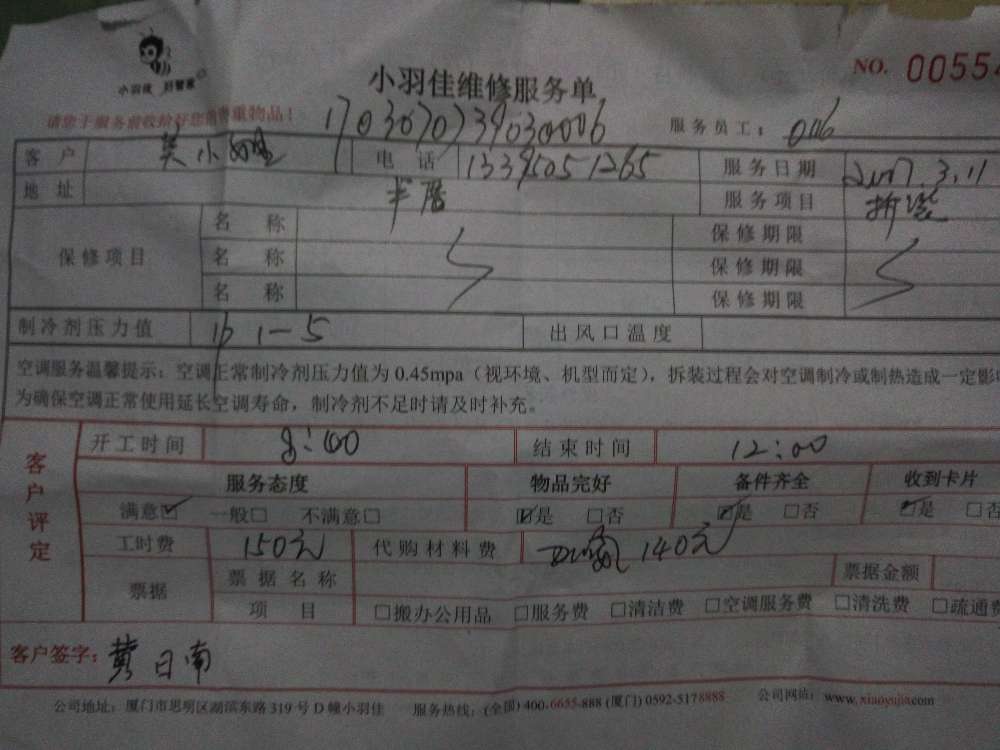 小羽佳 好管家
小羽佳维修服务单
NO. 00554
请您于服务前收拾好您的贵重物品！
17030707339030006
服务员工： 0116
客 户 电 话 13395051265 服务日期 2017.3.11
地 址 半屏 服务项目 拆装
保修项目 名 称 保修期限
名 称 保修期限
名 称 保修期限
制冷剂压力值 出风口温度
空调服务温馨提示：空调正常制冷剂压力值为 0.45mpa（视环境、机型而定），拆装过程会对空调制冷或制热造成一定影响
为确保空调正常使用延长空调寿命，制冷剂不足时请及时补充。
客户评定
开工时间 8:00 结束时间 12:00
服务态度 物品完好 备件齐全 收到卡片
满意☑ 一般□ 不满意□ ☑是 □否 ☑是 □否 ☑是 □否
工时费 150元 代购材料费 140元
票据 票据名称 票据金额
项 目 □搬办公用品 □服务费 □清洁费 □空调服务费 □清洗费 □疏通费
客户签字： 黄日南
公司地址：厦门市思明区湖滨东路 319 号 D 幢小羽佳 服务热线：(全国) 400-6655-888 (厦门) 0592-5178888 公司网站：www.xiaoyujia.com